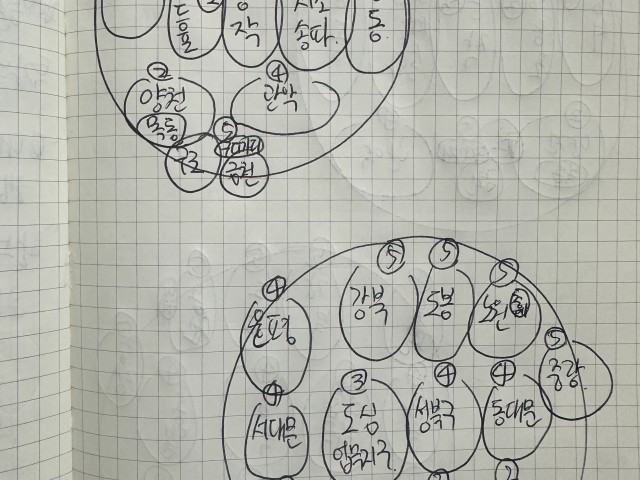 작
송파
동
②
양천
목동
④
관악
⑤
구로
금천
⑤
⑤
⑤
강북
도봉
노원
④
은평
⑤
중랑
③
도심
업무지구
④
성북구
④
동대문
④
서대문
2
2